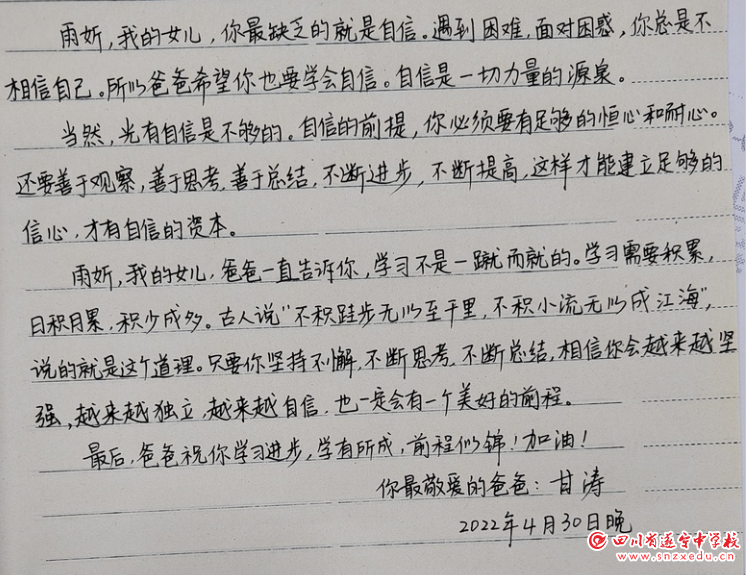 雨妡,我的女儿,你最缺乏的就是自信。遇到困难,面对困惑,你总是不
相信自己。所以爸爸希望你也要学会自信。自信是一切力量的源泉。
当然,光有自信是不够的。自信的前提,你必须要有足够的恒心和耐心。
还要善于观察,善于思考,善于总结,不断进步,不断提高,这样才能建立足够的
信心,才有自信的资本。
雨妡,我的女儿,爸爸一直告诉你,学习不是一蹴而就的。学习需要积累,
日积月累,积少成多。古人说"不积跬步无以至千里,不积小流无以成江海",
说的就是这个道理。只要你坚持不懈,不断思考,不断总结,相信你会越来越坚
强,越来越独立,越来越自信,也一定会有一个美好的前程。
最后,爸爸祝你学习进步,学有所成,前程似锦!加油!
你最敬爱的爸爸:甘涛
2022年4月30日晚
四川省遂宁中学校
www.snzxedu.cn